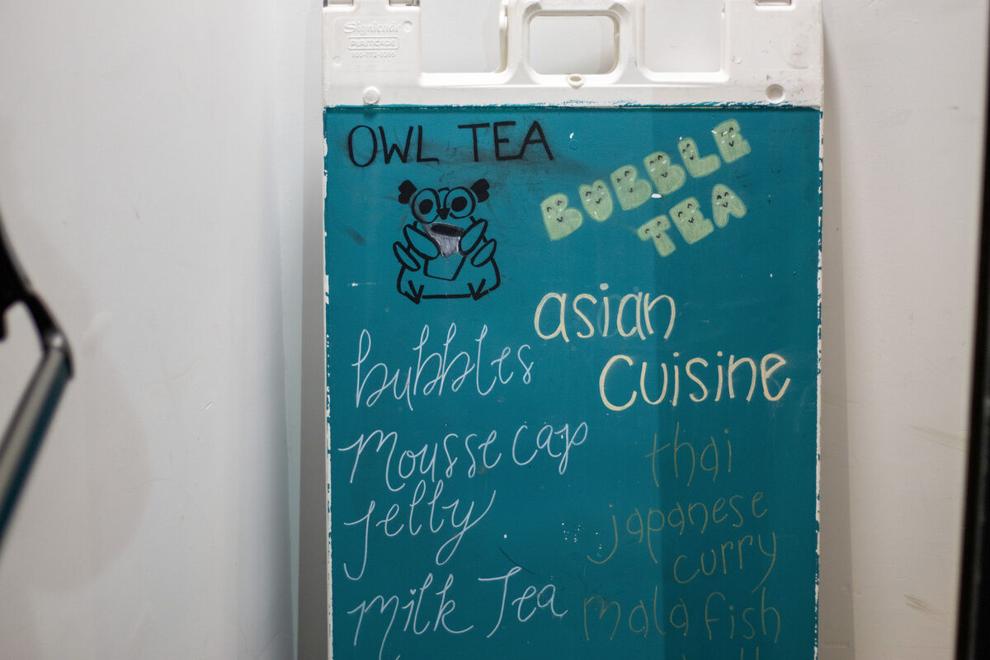 Signicade
PLASTICADE
OWL TEA
BUBBLE
TEA
asian
Cuisine
bubbles
Mousse cap
Jelly
Milk Tea
thai
japanese
curry
mala fish